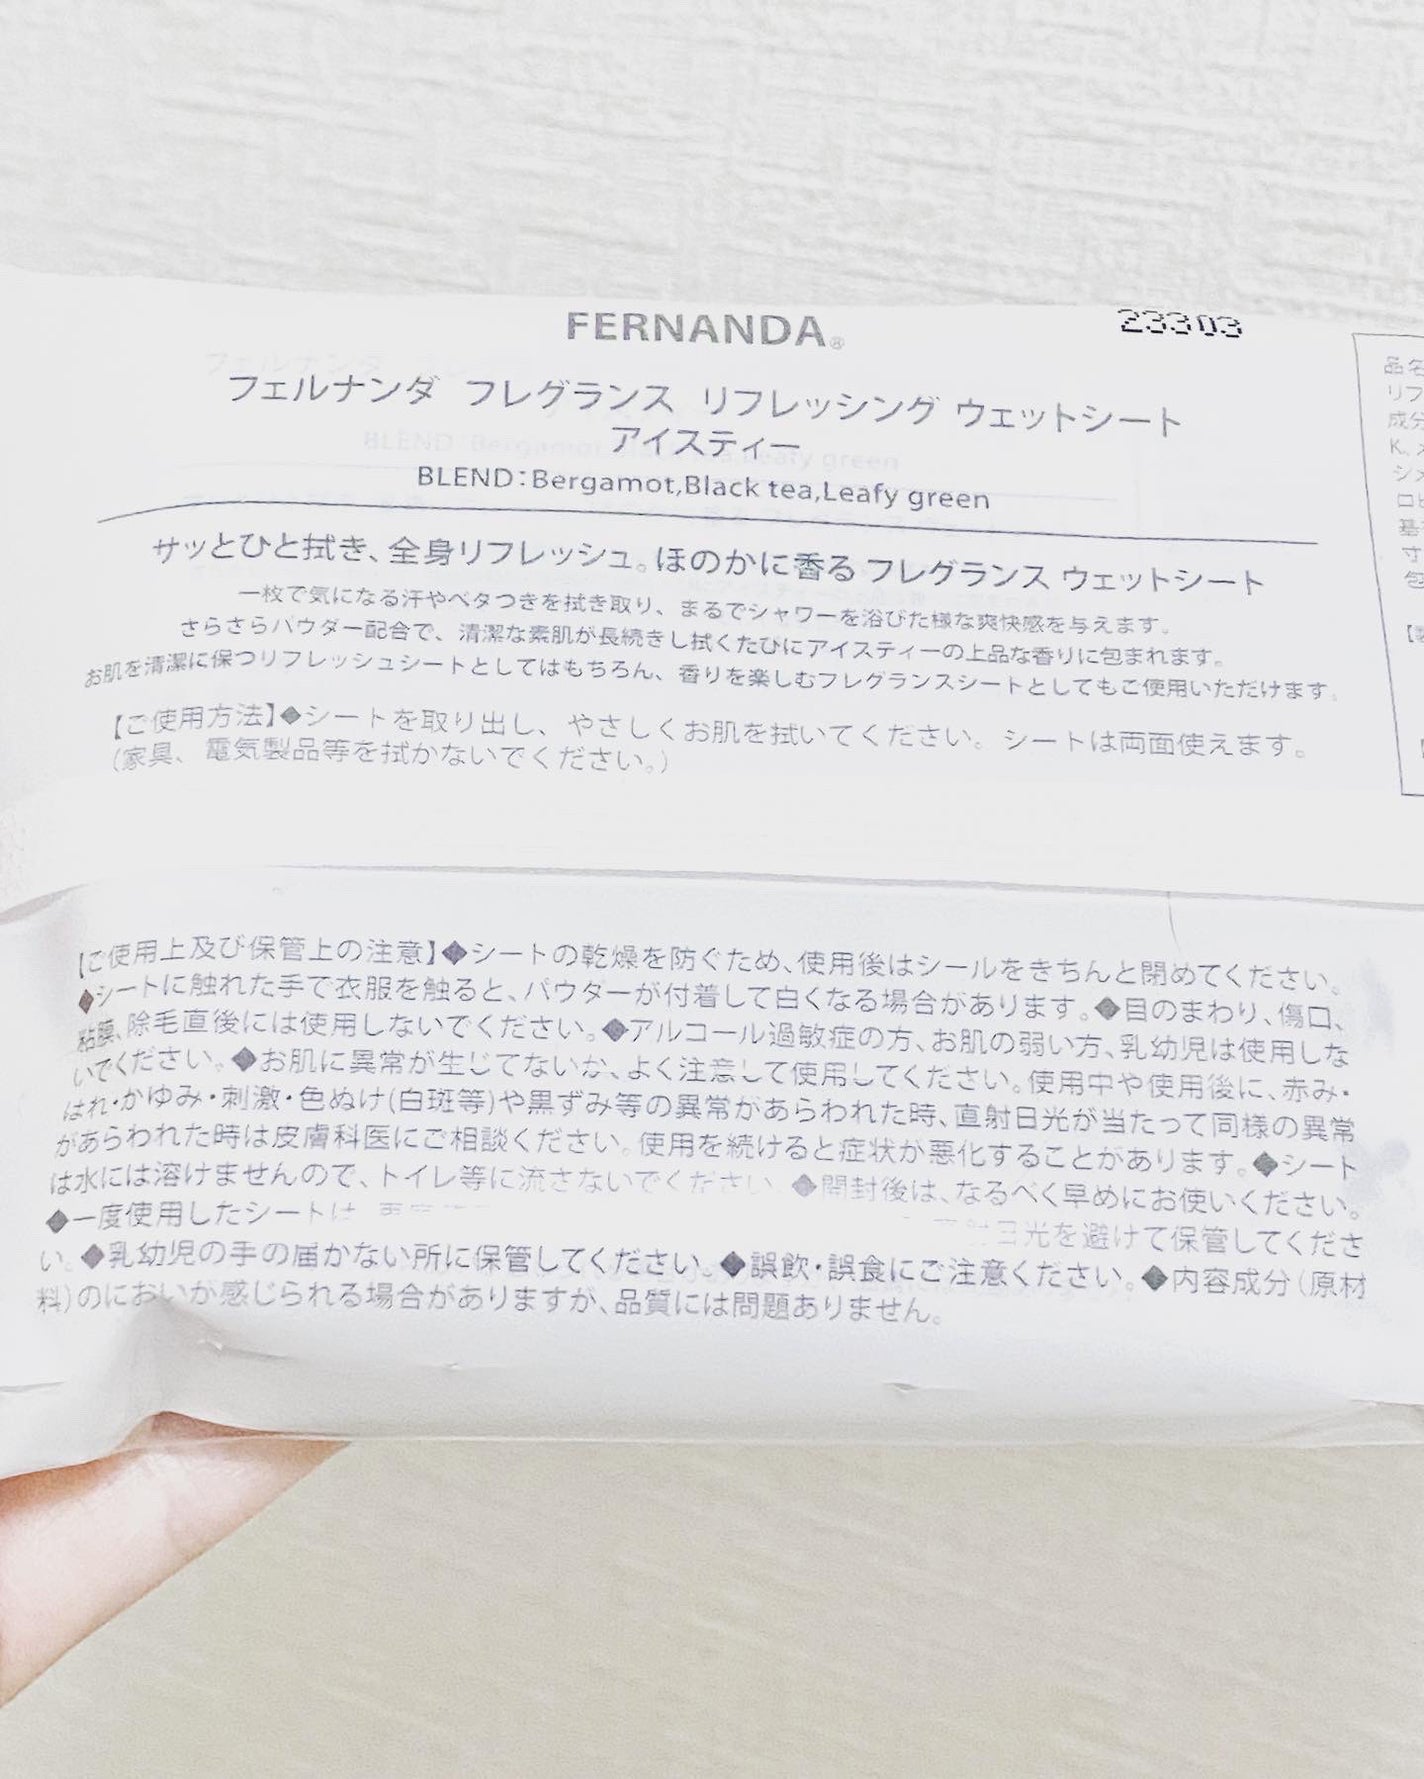 FERNANDA®
23303
フェルナンダ フレグランス リフレッシング ウェットシート
アイスティー
BLEND:Bergamot,Black tea,Leafy green
サッとひと拭き、全身リフレッシュ。ほのかに香る フレグランス ウェットシート
一枚で気になる汗やベタつきを拭き取り、まるでシャワーを浴びた様な爽快感を与えます。
さらさらパウダー配合で、清潔な素肌が長続きし拭くたびにアイスティーの上品な香りに包まれます。
お肌を清潔に保つリフレッシュシートとしてはもちろん、香りを楽しむフレグランスシートとしてもご使用いただけます。
【ご使用方法】◆シートを取り出し、やさしくお肌を拭いてください。シートは両面使えます。
(家具、電気製品等を拭かないでください。)
品名
リフ
成分
K、
シメ
ロ
基
寸
包
【ご使用上及び保管上の注意】◆シートの乾燥を防ぐため、使用後はシールをきちんと閉めてください。
◆シートに触れた手で衣服を触ると、パウダーが付着して白くなる場合があります。◆目のまわり、傷口、
粘膜、除毛直後には使用しないでください。◆アルコール過敏症の方、お肌の弱い方、乳幼児は使用しな
いでください。◆お肌に異常が生じてないか、よく注意して使用してください。使用中や使用後に、赤み・
はれ・かゆみ・刺激・色ぬけ(白斑等)や黒ずみ等の異常があらわれた時、直射日光が当たって同様の異常
があらわれた時は皮膚科医にご相談ください。使用を続けると症状が悪化することがあります。◆シート
は水には溶けませんので、トイレ等に流さないでください。◆開封後は、なるべく早めにお使いください。
◆一度使用したシートは、 日光を避けて保管してくださ
い。◆乳幼児の手の届かない所に保管してください。◆誤飲・誤食にご注意ください。◆内容成分(原材
料)のにおいが感じられる場合がありますが、品質には問題ありません。